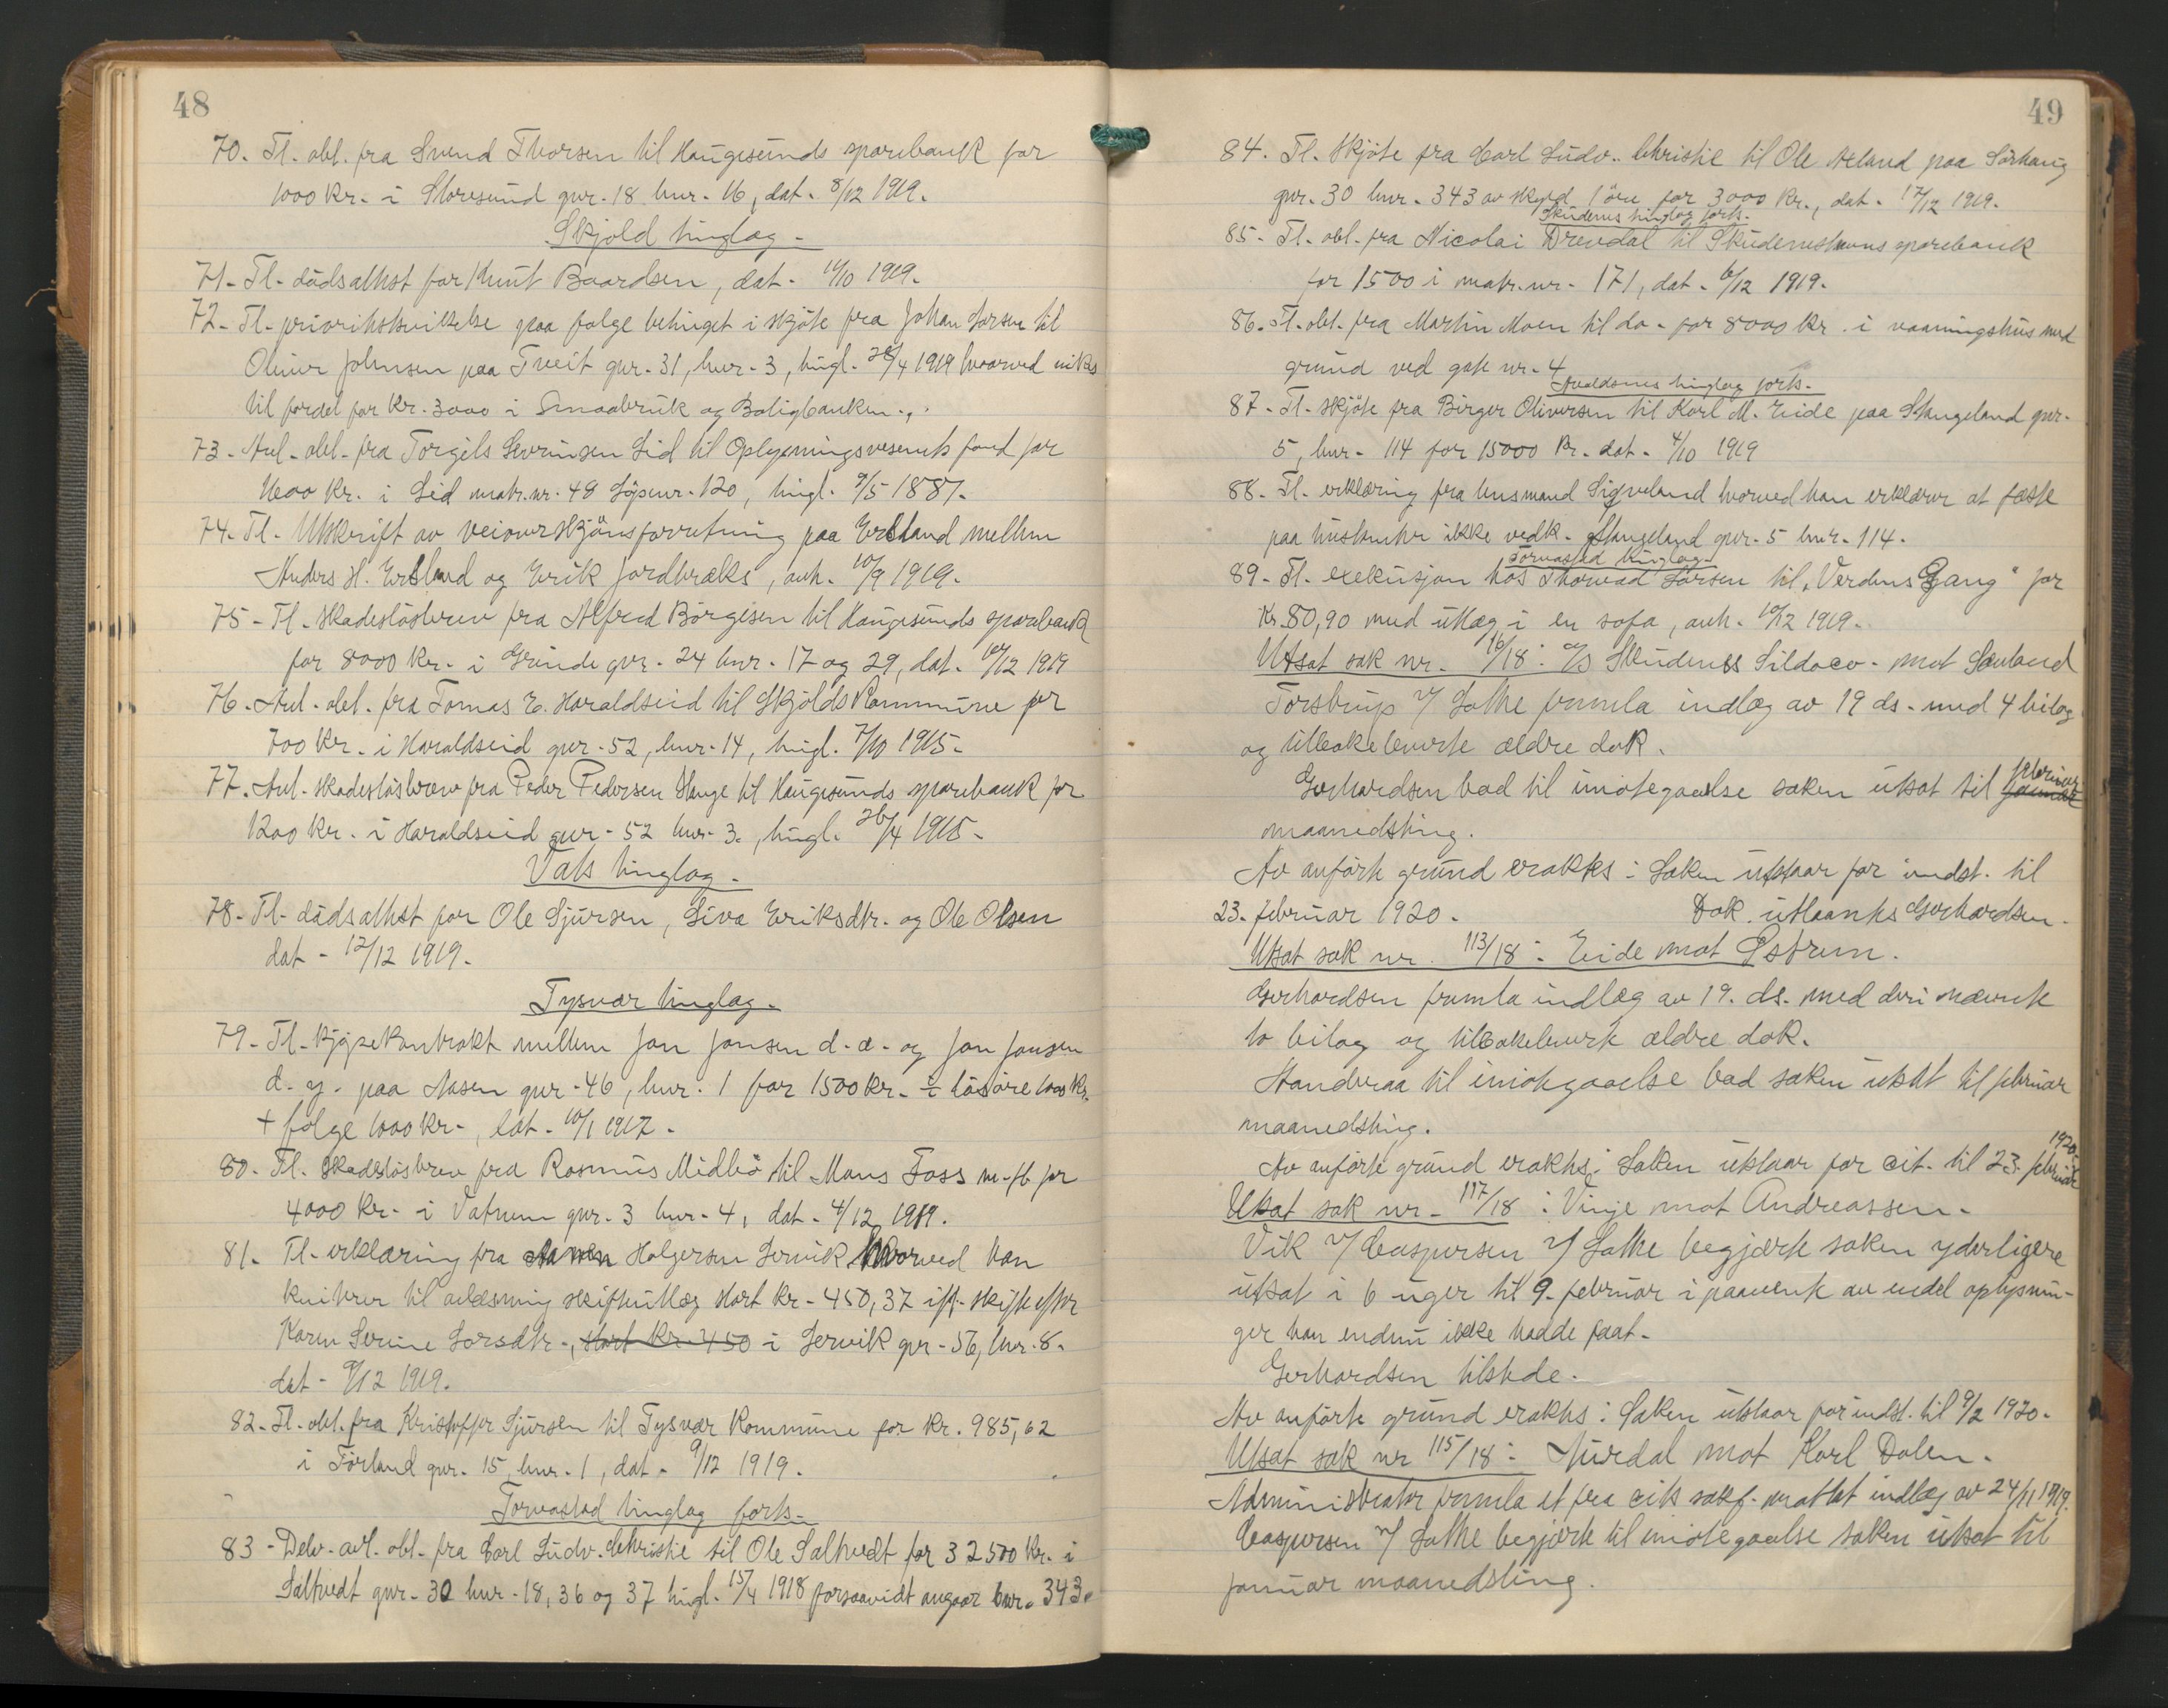 48
70. Tl. obl. fra Svend Thorsen til Haugesunds sparebank for
1000 kr. i Storesund gnr. 18 bnr. 16, dat. 8/12 1919.
Skjold tinglag.
71. Tl. dødsattest for Knut Baardsen, dat. 14/10 1919.
72. Tl. prioritetsvikelse paa følge betinget i skjøte fra Johan Larsen til
Oliver Johnsen paa Tveit gnr. 31, bnr. 3, tingl. 28/4 1919 hvorved vikes
til fordel for kr. 3000 i Smaabruk og Boligbanken.
73. Avl. obl. fra Torgils Sevrinsen Lid til Oplysningsvesenets fond for
1600 kr. i Lid matr.nr. 48 Løpenr. 120, tingl. 9/5 1887.
74. Tl. Utskrift av veioverskjønsforretning paa Erland mellem
Anders H. Erland og Erik Jordbræks, avh. 10/9 1919.
75. Tl. skadesløsbrev fra Alfred Børgesen til Haugesunds sparebank
for 8000 kr. i Grinde gnr. 24 bnr. 17 og 29, dat. 10/12 1919
76. Avl. obl. fra Tomas E. Haraldseid til Skjolds Kommune for
700 kr. i Haraldseid gnr. 52, bnr. 14, tingl. 7/10 1915.
77. Avl. skadesløsbrev fra Peder Pedersen Hauge til Haugesunds sparebank for
1200 kr. i Haraldseid gnr. 52 bnr. 3, tingl. 26/4 1915.
Vats tinglag.
78. Tl. dødsattest for Ole Sjursen, Siva Eriksdtr. og Ole Olsen
dat. 12/12 1919.
Tysvær tinglag.
79. Tl. kjøpekontrakt mellem Jan Jansen d. æ. og Jan Jansen
d. y. paa Aasen gnr. 46, bnr. 1 for 1500 kr. ÷ løsøre 1000 kr.
+ følge 1000 kr., dat. 10/1 1917.
80. Tl. skadesløsbrev fra Rasmus Midbø til Mons Foss m. fl. for
4000 kr. i Vatnem gnr. 3 bnr. 4, dat. 4/12 1919.
81. Tl. erklæring fra Holgersen Lervik hvorved han
kviterer til avløsning skifteutlæg stort kr. 450,37 ifl. skifte efter
Karen Serine Larsdtr., stort kr. 450 i Lervik gnr. 56, bnr. 8.
dat. 9/12 1919.
82. Tl. obl. fra Kristoffer Sjursen til Tysvær Kommune for kr. 985,62
i Førland gnr. 15, bnr. 1, dat. 9/12 1919.
Torvastad tinglag forts.
83. Delv. avl. obl. fra Carl Ludv. Christie til Ole Saltvedt for 32500 kr. i
Saltvedt gnr. 30 bnr. 18, 36 og 37 tingl. 15/4 1918 forsaavidt angaar bnr. 343.
49
84. Tl. skjøte fra Carl Ludv. Christie til Ole Aeland paa Sørhaug
gnr. 30 bnr. 343 av skyld 1 øre for 3000 kr., dat. 17/12 1919.
Skudenes tinglag forts.
85. Tl. obl. fra Nicolai Drevdal til Skudeneshavns sparebank
for 1500 i matr.nr. 171, dat. 6/12 1919.
86. Tl. obl. fra Martin Moen til do. for 8000 kr. i vaaningshus med
grund ved gate nr. 4
Avaldsnes tinglag forts.
87. Tl. skjøte fra Birger Oliversen til Karl M. Eide paa Stangeland gnr.
5, bnr. 114 for 15000 kr. dat. 4/10 1919
88. Tl. erklæring fra husmand Sigveland hvorved han erklærer at fæste
paa hustomter ikke vedk. Stangeland gnr. 5 bnr. 114.
Torvastad tinglag.
89. Tl. exekusjon hos Thorvad Larsen til "Verdens Gang" for
Kr. 80,90 med utlæg i en sofa, avh. 10/12 1919.
Utsat sak nr. 16/18: A/S Skudenes Sildoco. mot Sauland
Torstrup v/ Lothe fremla indlæg av 19 ds. med 4 bilag
og tilbakeleverte ældre dok.
Gerhardsen bad til imøtegaaelse saken utsat til januar februar
maanedsting.
Av anførte grund eraktes: Saken utstaar for indst. til
23. februar 1920. Dok. utlaantes Gerhardsen.
Utsat sak nr. 113/18: Eide mot Østrem.
Gerhardsen fremla indlæg av 19. ds. med deri nævnte
to bilag og tilbakeleverte ældre dok.
Standeraa til imøtegaaelse bad saken utsat til februar
maanedsting.
Av anførte grund eraktes: Saken utstaar for cit. til 23. februar 1920.
Utsat sak nr. 117/18: Vinje mot Andreassen.
Vik v/ Caspersen v/ Lothe begjærte saken yderligere
utsat i 6 uger til 9. februar i paavente av endel oplysnin-
ger han endnu ikke hadde faat.
Gerhardsen tilstede.
Av anførte grund eraktes: Saken utstaar for indst. til 9/2 1920.
Utsat sak nr 115/18: Aurdal mot Karl Dalen.
Administrator fremla et fra cits sakf. mottat indlæg av 24/11 1919.
Caspersen v/ Lothe begjærte til imøtegaaelse saken utsat til
januar maanedsting.